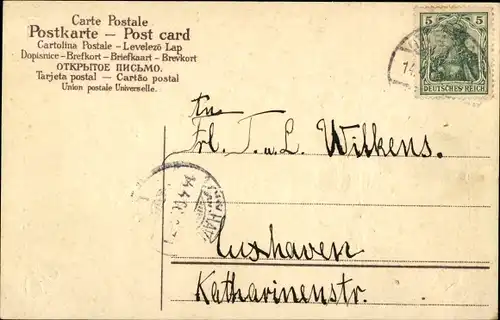 Carte Postale
Postkarte – Post card
Cartolina Postale – Levelező Lap
Dopisnice – Brefkort – Briefkaart – Brevkort
ОТКРЫТОЕ ПИСЬМО.
Tarjeta postal – Cartão postal
Union postale Universelle.
5 5
DEUTSCHES REICH
14.
An
Frl. T. u. L. Wilkens.
14.4.
Cuxhaven
Katharinenstr.